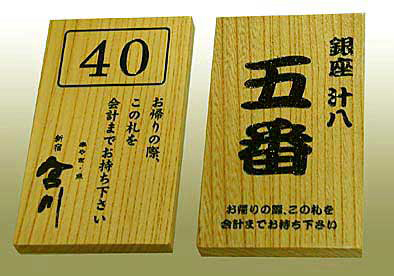 40
お帰りの際、
この札を
会計までお持ち下さい
新宿
宮川
銀座 汁八
五番
お帰りの際、この札を
会計までお持ち下さい